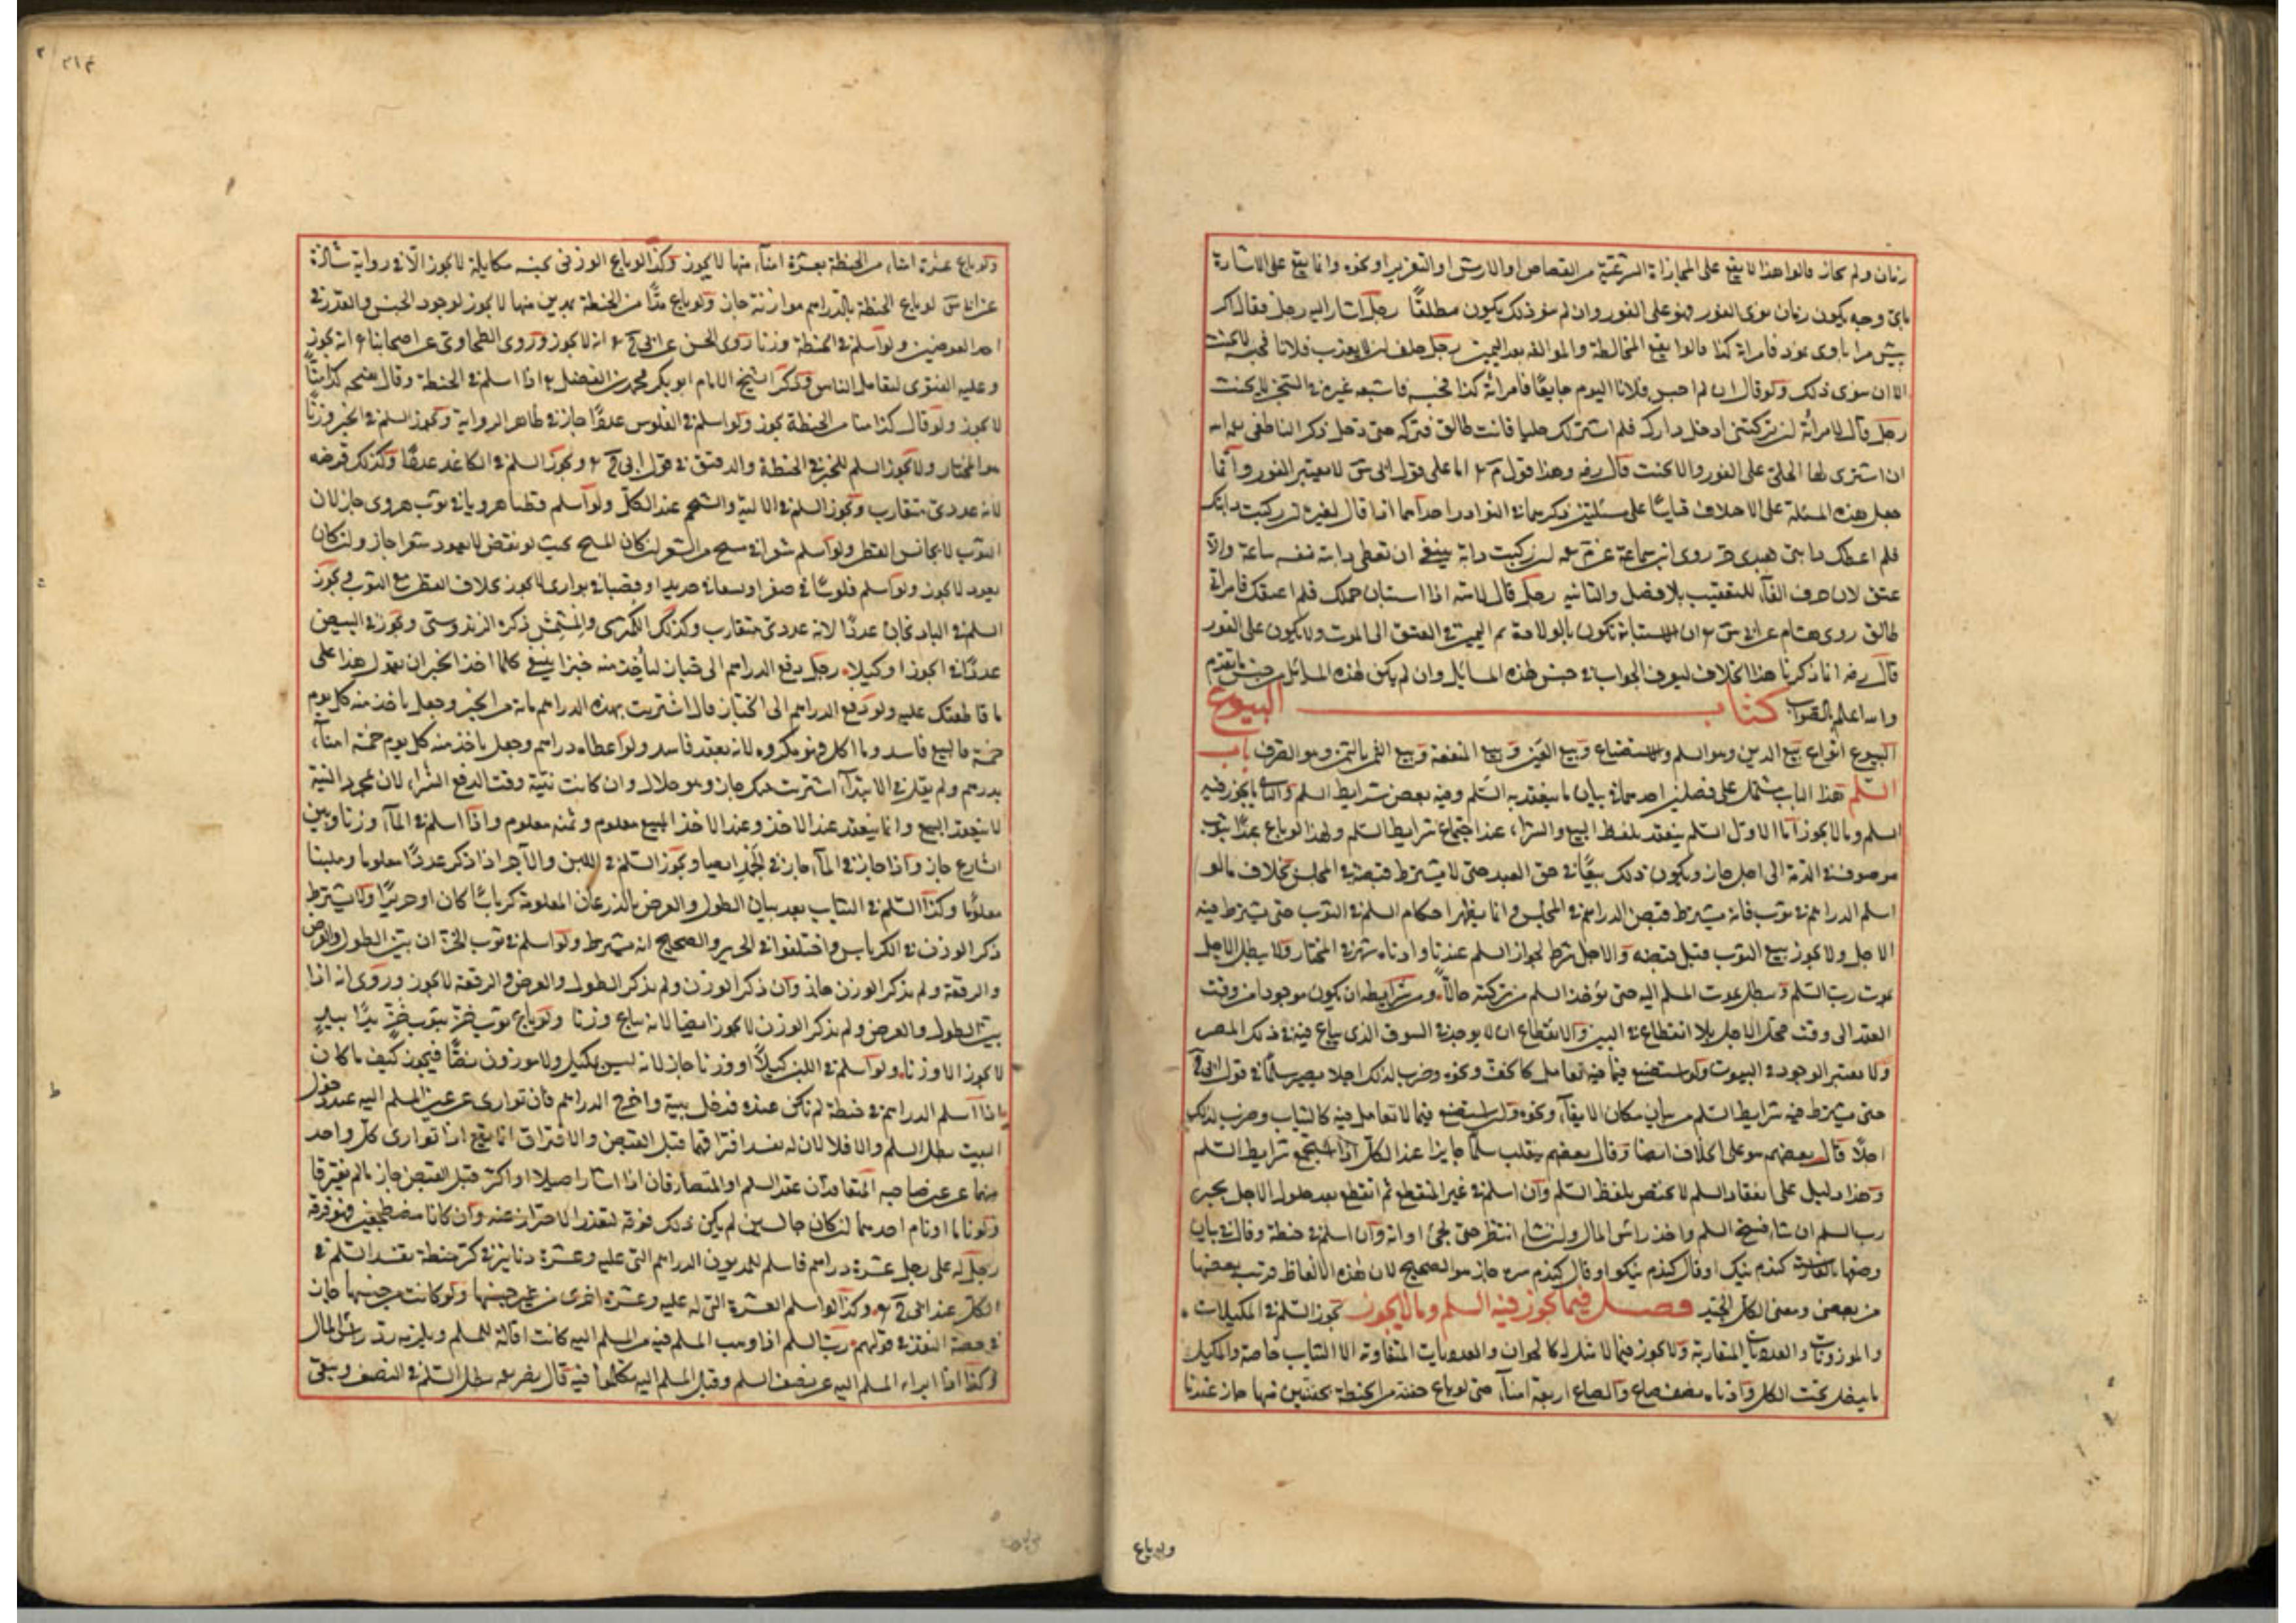 زيان ولم يجاز قالوا هذا لا يقع على المجازاة الشرعية من القصاص او الارش او التعزير او نحوه وانما يقع على الاساءة
باى وجه يكون زيان نوى الفور فهو على الفور وان لم ينو ذلك يكون مطلقًا رجل اشار اليه رجل فقال اكر
الا ان ينوى ذلك ولو قال ان لم احبس فلانا اليوم جايعًا فامرأته كذا فحبسه فاشبعه غيره في السجن لا يحنث
رجل قال لامرأته ان تركتنى ادخل دارك فلم اشتر لك حليا فانت طالق فتركته حتى دخل ذكر الناطفى انه
ان اشترى لها الحلى على الفور والا يحنث قال رضه وهذا قول م اما على قول ابى س لا يعتبر الفور وانما
جعل هذه المسئلة على الاختلاف قياسًا على مسئلتين ذكرهما في النوادر احداهما اذا قال لغيره ان ركبت دابتك
فلم اعطك دابتى فعبدى حر روى ابن سماعة عن م ان ركبت دابة ينبغى ان تعطى دابة نفسه ساعة والا
عتق لان حرف الفاء للتعقيب بلا فصل والثانية رجل قال لامته اذا استبان حملك فلم اعتقك فامرأتى
طالق روى هشام عن ابى س ان الاستبانة تكون بالولادة ثم اليمين في العتق الى الموت ولا يكون على الفور
قال رضه انما ذكرنا هذا الخلاف ليعرف الجواب في جنس هذه المسائل وان لم يكن هذه المسائل من جنس ما تقدم
والله اعلم بالصواب كتاب البيوع
البيوع انواع بيع الدين وهو السلم والاستصناع وبيع العين وبيع المنفعة وبيع الثمن بالثمن وهو الصرف باب
السلم هذا الباب يشتمل على فصلين احدهما في بيان ما ينعقد به السلم وفيه بعض شرايط السلم والثانى ما يجوز فيه
السلم وما لا يجوز اما الاول السلم ينعقد بلفظ البيع والشراء عند اجتماع شرايط السلم ولهذا لو باع عبدًا بثوب
موصوف في الذمة الى اجل جاز ويكون ذلك بيعًا في حق العبد حتى لا يشترط قبضه في المجلس بخلاف ما لو
اسلم الدراهم في ثوب فانه يشترط قبض الدراهم في المجلس وانما يظهر احكام السلم في الثوب حتى يشترط فيه
الاجل ولا يجوز بيع الثوب قبل قبضه والاجل شرط لجواز السلم عندنا وادناه شهر في المختار ولا يبطل الاجل
بموت رب السلم ويبطل بموت المسلم اليه حتى يؤخذ السلم من تركته حالاً ومن شرايطه ان يكون موجودا من وقت
العقد الى وقت محل الاجل بلا انقطاع في البين والانقطاع ان لا يوجد في السوق الذى يباع فيه في ذلك المصر
ولا يعتبر الوجود في البيوت ولو استصنع فيما فيه تعامل كالخف ونحوه وضرب لذلك اجلا يصير سلمًا في قول ابى ح
حتى يشترط فيه شرايط السلم من بيان مكان الايفاء ونحوه ولو استصنع فيما لا تعامل فيه كالثياب وضرب لذلك
اجلاً قال بعضهم هو على الخلاف ايضا وقال بعضهم ينقلب سلمًا جايزا عند الكل اذا استجمع شرايط السلم
وهذا دليل على انعقاد السلم لا يختص بلفظ السلم وان اسلم في غير المنقطع ثم انقطع بعد حلول الاجل يخير
رب السلم ان شاء فسخ السلم واخذ رأس المال وان شاء انتظر حتى يجئ اوانه وان اسلم في حنطة وقال في بيان
وصفها بالفارسية كندم نيك او قال كندم نيكو او قال كندم سره جاز هو الصحيح لان هذه الالفاظ قريب بعضها
من بعض ومعنى الكل الجيد فصل فيما يجوز فيه السلم وما لا يجوز يجوز السلم في المكيلات
والموزونات والعدديات المتقاربة ولا يجوز فيما لا مثل له كالحيوان والعدديات المتفاوتة الا الثياب خاصة والمكيل
ما يدخل تحت الكل وادناه نصف صاع والصاع اربعة امناء حتى لو باع حفنة من الحنطة بحفنتين منها جاز عندنا
ولو باع
ولو باع عشرة امناء من الحنطة بعشرة امناء منها لا يجوز وكذا لو باع الوزنى بجنسه مكايلة لا يجوز الا في رواية شاذة
عن ابى س لو باع الحنطة بالدراهم موازنة جاز ولو باع مدًّا من الحنطة بمدين منها لا يجوز لوجود الجنس والقدر في
احد العوضين ولو اسلم في الحنطة وزنا روى الحسن عن ابى ح انه لا يجوز وروى الطحاوى عن اصحابنا انه يجوز
وعليه الفتوى لتعامل الناس وذكر الشيخ الامام ابو بكر محمد بن الفضل اذا اسلم في الحنطة وقال بسنجه كذا منًّا
لا يجوز ولو قال كذا منا من الحنطة يجوز ولو اسلم في الفلوس عددًا جاز في ظاهر الرواية ويجوز السلم في الخبز وزنًا
هو المختار ولا يجوز السلم للخبز في الحنطة والدقيق في قول ابى ح ويجوز السلم في الكاغد عددًا وكذلك قرضه
لانه عددى متقارب ويجوز السلم في الالية والشحم عند الكل ولو اسلم قطنا هرويا في ثوب هروى جاز لان
الثوب لا يجانس القطن ولو اسلم شعرا في مسح من الشعر ان كان المسح بحيث لو نقض لا يعود شعرا جاز وان كان
يعود لا يجوز ولو اسلم فلوسًا في صفر او سيفا في حديد او قصبا في بوارى لا يجوز بخلاف القطن مع الثوب ويجوز
السلم في الباذنجان عددًا لانه عددى متقارب وكذلك الكمثرى والمشمش ذكره الزندوستى ويجوز في البيض
عددًا في الجوز او كيلا رجل دفع الدراهم الى خباز ليأخذ منه خبزا ينبغى كلما اخذ الخبز ان يقول هذا على
ما قاطعتك عليه ولو دفع الدراهم الى الخباز قال اشتريت بهذه الدراهم مائة من الخبز وجعل ياخذ منه كل يوم
خمسة فالبيع فاسد وما اكل فهو مكروه لانه بعقد فاسد ولو اعطاه دراهم وجعل ياخذ منه كل يوم خمسة امناء
بدرهم ولم يقل في الابتداء اشتريت منك جاز وهو حلال وان كانت نيته وقت الدفع الشراء لان بمجرد النية
لا ينعقد البيع وانما ينعقد عند الاخذ وعند الاخذ المبيع معلوم وثمنه معلوم واذا اسلم في الماء وزنا وبين
الشارع جاز واذا جاز في الماء جاز في الجمد ايضا ويجوز السلم في اللبن والآجر اذا ذكر عددًا معلوما وملبنا
معلومًا وكذا السلم في الثياب بعد بيان الطول والعرض بالذرعان المعلومة كرباسًا كان او حريرًا ولا يشترط
ذكر الوزن في الكرباس واختلفوا في الحرير والصحيح انه يشترط ولو اسلم في ثوب الخز ان بين الطول والعرض
والرقعة ولم يذكر الوزن جاز وان ذكر الوزن ولم يذكر الطول والعرض والرقعة لا يجوز وروى انه اذا
بين الطول والعرض ولم يذكر الوزن لا يجوز ايضا لانه يباع وزنا ولو باع ثوب خز بثوب خز يدًا بيد
لا يجوز الا وزنا ولو اسلم في اللبن كيلاً او وزنا جاز لانه ليس بمكيل ولا موزون نصًّا فيجوز كيف ما كان
اذا اسلم الدراهم في حنطة لم تكن عنده فدخل بيته واخرج الدراهم فان توارى عن عين المسلم اليه عند دخول
البيت بطل السلم والا فلا لان له بعد افترقا قبل القبض والافتراق انما يقع اذا توارى كل واحد
منهما عن عين صاحبه المتعاقدان عقد السلم او المتصارفان اذا سارا ميلا او اكثر قبل القبض جاز ما لم يفترقا
ولو ناما او نام احدهما ان كان جالسين لم يكن ذلك فرقة لتعذر الاحتراز عنه وان كانا مضطجعين فهو فرقة
رجل له على رجل عشرة دراهم فاسلم للمديون الدراهم التى عليه وعشرة دنانيز في كر حنطة يفسد السلم في
الكل عند ابى ح وكذا لو اسلم العشرة التى له عليه وعشرة اخرى من غير جنسها ولو كانت من جنسها جاز
في حصة النقد في قولهم رب السلم اذا وهب المسلم فيه من المسلم اليه كانت اقالة للسلم ويلزمه رد رأس المال
وكذا اذا ابراء المسلم اليه عن نصف السلم وقبل المسلم اليه تكلموا فيه قال بعضهم يبطل السلم في النصف ويبقى